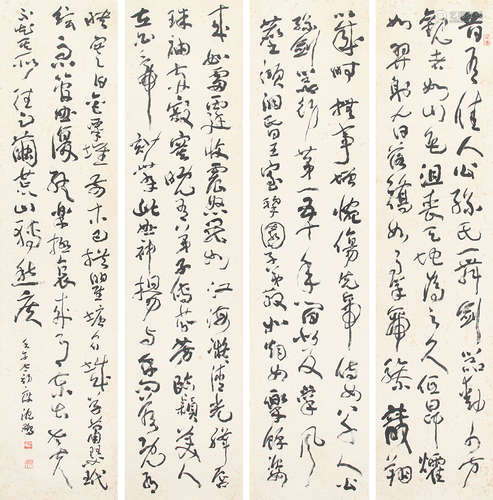 昔有佳人公孫氏一舞劍器動四方
觀者如山色沮喪天地為之久低昂㸌
如羿射九日落矯如群帝驂龍翔
來如雷霆收震怒罷如江海凝清光絳唇
珠袖兩寂寞晚有弟子傳芬芳臨潁美人
在白帝妙舞此曲神揚揚與余問答既有以
感時撫事增惋傷先帝侍女八千人公
孫劍器初第一五十年間似反掌風
塵澒洞昏王室梨園子弟散如煙女樂餘姿
映寒日金粟堆前木已拱瞿塘石城草蕭瑟玳
筵急管曲復終樂極哀來月東出老夫
不知其所往足繭荒山轉愁疾